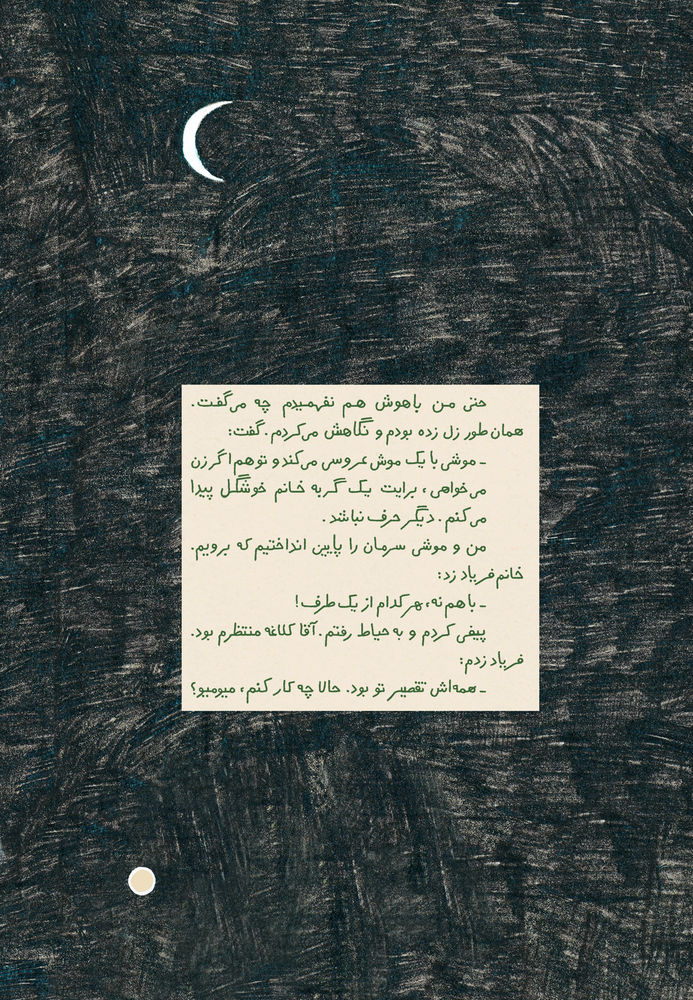 حتی من باهوش هم نفهمیدم چه می‌گفت.
همان طور زل زده بودم و نگاهش می‌کردم. گفت:
ـ موشی با یک موش عروسی می‌کند و تو هم اگر زن
می‌خواهی، برایت یک گربه خانم خوشگل پیدا
می‌کنم. دیگر حرف نباشد.
من و موشی سرمان را پایین انداختیم که برویم.
خانم فریاد زد:
ـ با هم نه، هر کدام از یک طرف!
پیفی کردم و به حیاط رفتم. آقا کلاغه منتظرم بود.
فریاد زدم:
ـ همه‌اش تقصیر تو بود. حالا چه کار کنم، میومیو؟